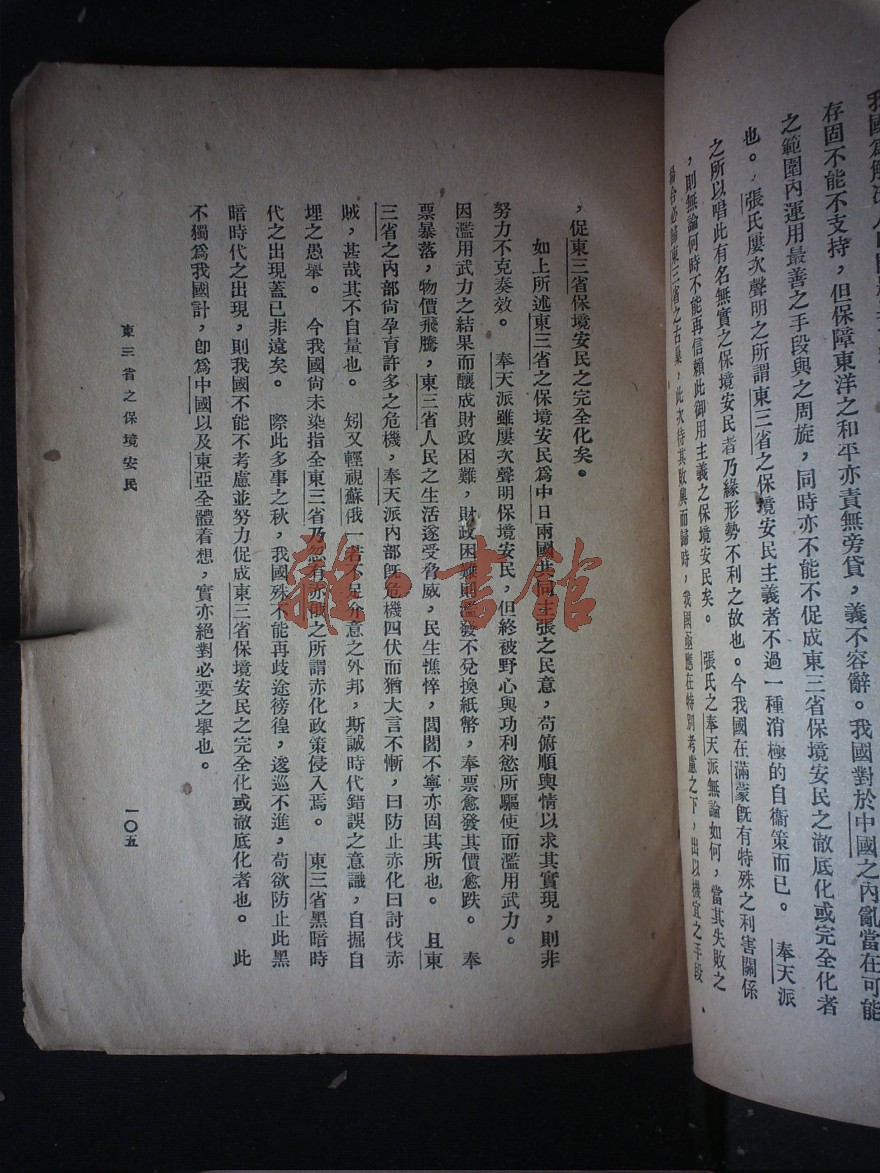 存固不能不支持，但保障東洋之和平亦責無旁貸，義不容辭。我國對於中國之內亂當在可能
之範圍內運用最善之手段與之周旋，同時亦不能不促成東三省保境安民之澈底化或完全化者
也。張氏屢次聲明之所謂東三省之保境安民主義者不過一種消極的自衞策而已。　奉天派
之所以唱此有名無實之保境安民者乃緣形勢不利之故也。今我國在滿蒙旣有特殊之利害關係
，則無論何時不能再信賴此御用主義之保境安民矣。　張氏之奉天派無論如何，當其失敗之
場合必歸東三省之古巢，此次待其敗輿而歸時，我國亟應在特別考慮之下，出以機宜之手段
，促東三省保境安民之完全化矣。
如上所述東三省之保境安民爲中日兩國共同主張之民意，苟俯順輿情以求其實現，則非
努力不克奏效。　奉天派雖屢次聲明保境安民，但終被野心與功利慾所驅使而濫用武力。
因濫用武力之結果而釀成財政困難，財政困難則濫發不兌換紙幣，奉票愈發其價愈跌。　奉
票暴落，物價飛騰，東三省人民之生活遂受脅威，民生憔悴，閭閻不寧亦固其所也。　且東
三省之內部尙孕育許多之危機，奉天派內部旣危機四伏而猶大言不慚，曰防止赤化曰討伐赤
賊，甚哉其不自量也。　矧又輕視蘇俄一若不足介意之外邦，斯誠時代錯誤之意識，自掘自
埋之愚舉。　今我國尙未染指全東三省乃忽有赤俄之所謂赤化政策侵入焉。　東三省黑暗時
代之出現蓋已非遠矣。　際此多事之秋，我國殊不能再歧途徬徨，逡巡不進，苟欲防止此黑
暗時代之出現，則我國不能不考慮並努力促成東三省保境安民之完全化或澈底化者也。　此
不獨爲我國計，卽爲中國以及東亞全體着想，實亦絕對必要之舉也。
東三省之保境安民
一〇五
雜·書館